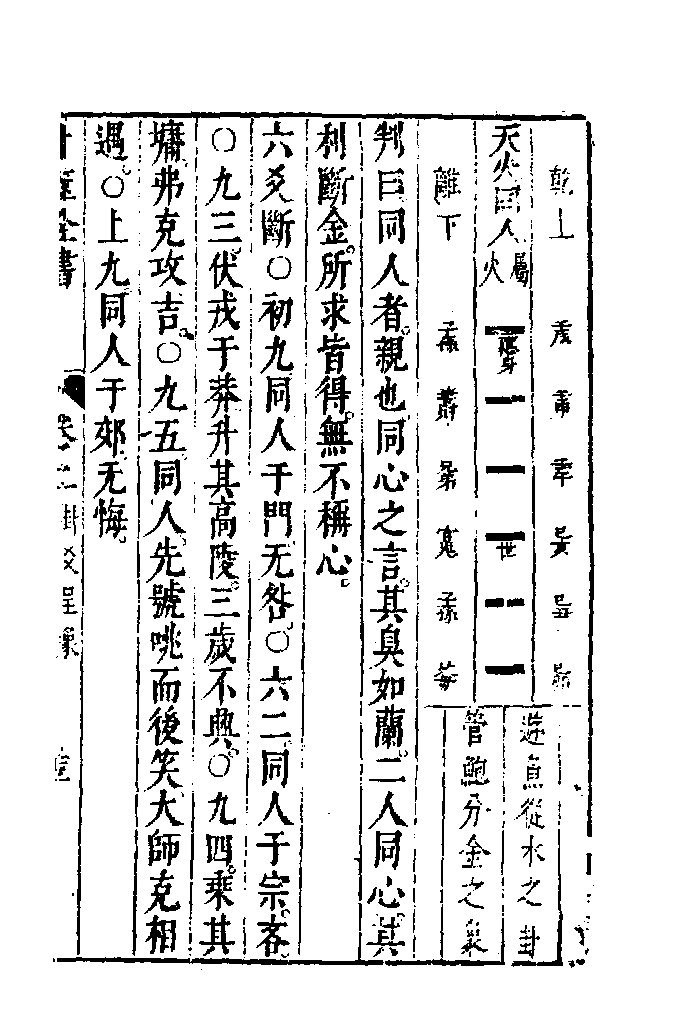 乾上
天火同人屬火
應身
世
離下
遊魚從水之卦
管鮑分金之象
判曰同人者親也同心之言其臭如蘭二人同心其
利斷金所求皆得無不稱心
六爻斷〇初九同人于門无咎〇六二同人于宗吝
〇九三伏戎于莽升其高陵三歲不興〇九四乘其
墉弗克攻吉〇九五同人先號咷而後笑大師克相
遇〇上九同人于郊无悔
全書 卷上 卦爻呈象